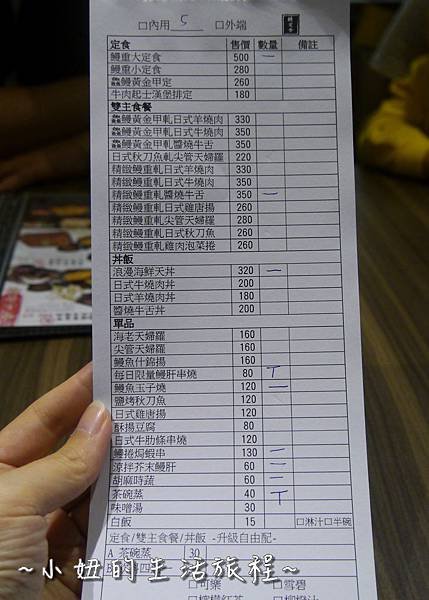 □內用 5 □外端
定食 售價 數量 備註
鰻重大定食 500 一
鰻重小定食 280
鰻黃金甲定 260
牛肉起士漢堡排定 180
雙主食餐
鰻黃金甲軋日式羊燒肉 330
鰻黃金甲軋日式牛燒肉 350
鰻黃金甲軋醬燒牛舌 350
日式秋刀魚軋尖管天婦羅 220
精緻鰻重軋日式羊燒肉 330
精緻鰻重軋日式牛燒肉 350
精緻鰻重軋醬燒牛舌 350 一
精緻鰻重軋日式雞唐揚 260
精緻鰻重軋尖管天婦羅 280
精緻鰻重軋日式秋刀魚 260
精緻鰻重軋雞肉泡菜捲 260
丼飯
浪漫海鮮天丼 320 一
日式牛燒肉丼 200
日式羊燒肉丼 180
醬燒牛舌丼 200
單品
海老天婦羅 160
尖管天婦羅 160
鰻魚什錦揚 160
每日限量鰻肝串燒 80 丅
鰻魚玉子燒 120 一
鹽烤秋刀魚 120
日式雞唐揚 120
酥揚豆腐 80
日式牛肋條串燒 120
鰻捲焗蝦串 130 一
涼拌芥末鰻肝 60 一
胡麻時蔬 60 一
茶碗蒸 40 丅
味噌湯 30
白飯 15 □淋汁□半碗
定食/雙主食餐/丼飯 -升級自由配-
A 茶碗蒸 30
□可樂 □雪碧
□檸檬紅茶 □柳橙汁
~小妞的生活旅程~